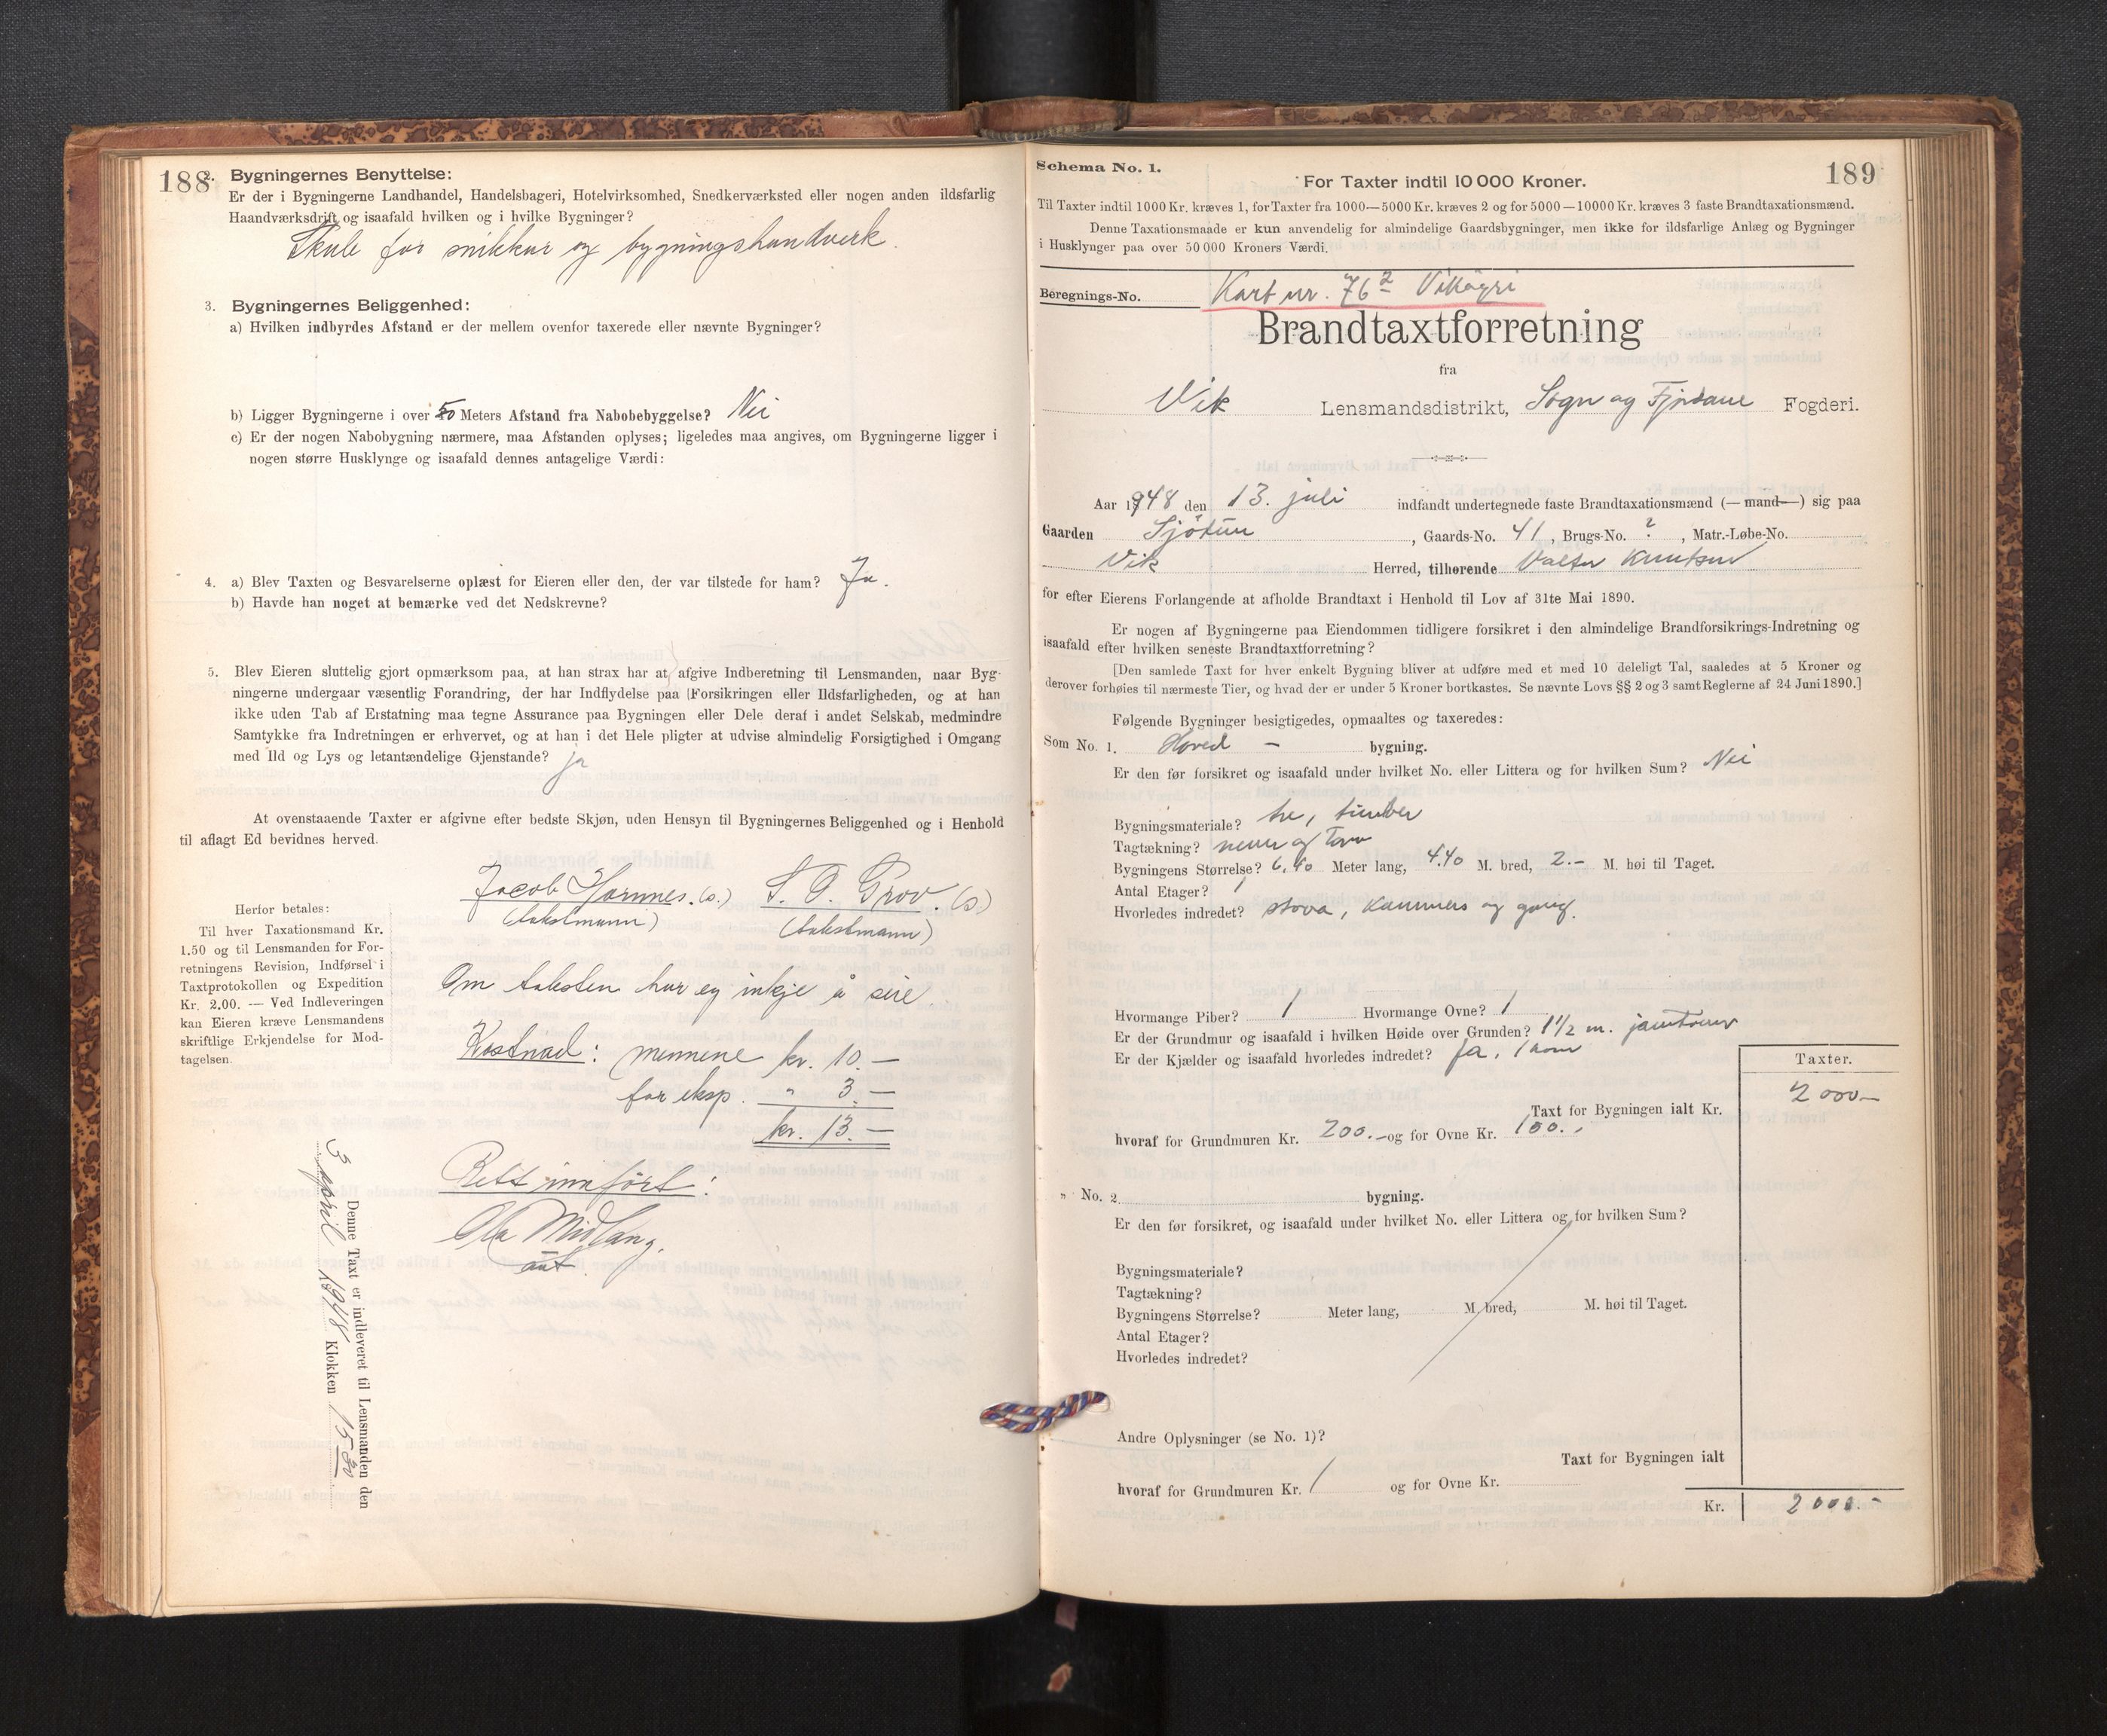 188
2. Bygningernes Benyttelse:
Er der i Bygningerne Landhandel, Handelsbageri, Hotelvirksomhed, Snedkerværksted eller nogen anden ildsfarlig
Haandværksdrift og isaafald hvilken og i hvilke Bygninger?
Skule for snikkar og bygningshandverk.
3. Bygningernes Beliggenhed:
a) Hvilken indbyrdes Afstand er der mellem ovenfor taxerede eller nævnte Bygninger?
b) Ligger Bygningerne i over 50 Meters Afstand fra Nabobebyggelse? Nei
c) Er der nogen Nabobygning nærmere, maa Afstanden oplyses; ligeledes maa angives, om Bygningerne ligger i
nogen større Husklynge og isaafald dennes antagelige Værdi:
4. a) Blev Taxten og Besvarelserne oplæst for Eieren eller den, der var tilstede for ham? Ja.
b) Havde han noget at bemærke ved det Nedskrevne?
5. Blev Eieren sluttelig gjort opmærksom paa, at han strax har at afgive Indberetning til Lensmanden, naar Byg-
ningerne undergaar væsentlig Forandring, der har Indflydelse paa Forsikringen eller Ildsfarligheden, og at han
ikke uden Tab af Erstatning maa tegne Assurance paa Bygningen eller Dele deraf i andet Selskab, medmindre
Samtykke fra Indretningen er erhvervet, og at han i det Hele pligter at udvise almindelig Forsigtighed i Omgang
med Ild og Lys og letantændelige Gjenstande? ja
At ovenstaaende Taxter er afgivne efter bedste Skjøn, uden Hensyn til Bygningernes Beliggenhed og i Henhold
til aflagt Ed bevidnes herved.
Jacob Hamnes. (s.) S. O. Grov. (s)
(takstmann) (takstmann)
Herfor betales:
Til hver Taxationsmand Kr.
1.50 og til Lensmanden for For-
retningens Revision, Indførsel i
Taxtprotokollen og Expedition
Kr. 2.00. — Ved Indleveringen
kan Eieren kræve Lensmandens
skriftlige Erkjendelse for Mod-
tagelsen.
Om taksten har eg inkje å seie.
Kostnad: mennene kr. 10.—
for eksp. " 3.—
kr. 13.—
Rett innført:
Ola Midlang.
Denne Taxt er indleveret til Lensmanden den
3 april 1948 Klokken 15-30
Schema No. 1.
189
For Taxter indtil 10 000 Kroner.
Til Taxter indtil 1000 Kr. kræves 1, for Taxter fra 1000—5000 Kr. kræves 2 og for 5000—10000 Kr. kræves 3 faste Brandtaxationsmænd.
Denne Taxationsmaade er kun anvendelig for almindelige Gaardsbygninger, men ikke for ildsfarlige Anlæg og Bygninger
i Husklynger paa over 50 000 Kroners Værdi.
Beregnings-No. Kart nr. 76² Vikøyri
Brandtaxtforretning
fra
Vik Lensmandsdistrikt, Sogn og Fjordane Fogderi.
Aar 1948 den 13. juli indfandt undertegnede faste Brandtaxationsmænd (—mand—) sig paa
Gaarden Sjøtun, Gaards-No. 41, Brugs-No. ?, Matr.-Løbe-No.
Vik Herred, tilhørende Valter Knutsen
for efter Eierens Forlangende at afholde Brandtaxt i Henhold til Lov af 31te Mai 1890.
Er nogen af Bygningerne paa Eiendommen tidligere forsikret i den almindelige Brandforsikrings-Indretning og
isaafald efter hvilken seneste Brandtaxtforretning?
[Den samlede Taxt for hver enkelt Bygning bliver at udføre med et med 10 deleligt Tal, saaledes at 5 Kroner og
derover forhøies til nærmeste Tier, og hvad der er under 5 Kroner bortkastes. Se nævnte Lovs §§ 2 og 3 samt Reglerne af 24 Juni 1890.]
Følgende Bygninger besigtigedes, opmaaltes og taxeredes:
Som No. 1. Hoved — bygning.
Er den før forsikret og isaafald under hvilket No. eller Littera og for hvilken Sum? Nei
Bygningsmateriale? tre, timber
Tagtækning? never og torv
Bygningens Størrelse? 6.40 Meter lang, 4.40 M. bred, 2.— M. høi til Taget.
Antal Etager? 1
Hvorledes indredet? stova, kammers og gang.
Hvormange Piber? 1 Hvormange Ovne? 1
Er der Grundmur og isaafald i hvilken Høide over Grunden? 1 1/2 m.
Er der Kjælder og isaafald hvorledes indredet? Ja, 1 rom
Taxter.
Taxt for Bygningen ialt Kr. 2 000—
hvoraf for Grundmuren Kr. 200.— og for Ovne Kr. 100.-
" No. 2. bygning.
Er den før forsikret, og isaafald under hvilket No. eller Littera og for hvilken Sum?
Bygningsmateriale?
Tagtækning?
Bygningens Størrelse? Meter lang, M. bred, M. høi til Taget.
Antal Etager?
Hvorledes indredet?
Andre Oplysninger (se No. 1)?
Taxt for Bygningen ialt
hvoraf for Grundmuren Kr. og for Ovne Kr.
Kr. 2 000.-